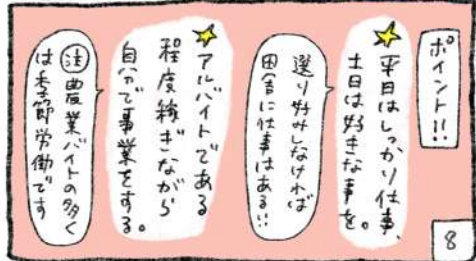 ポイント!!
平日はしっかり仕事、
土日は好きな事を。
選り好みしなければ
田舎に仕事はある!!
アルバイトである
程度稼ぎながら
自分で事業をする。
注 農業バイトの多く
は季節労働です
8